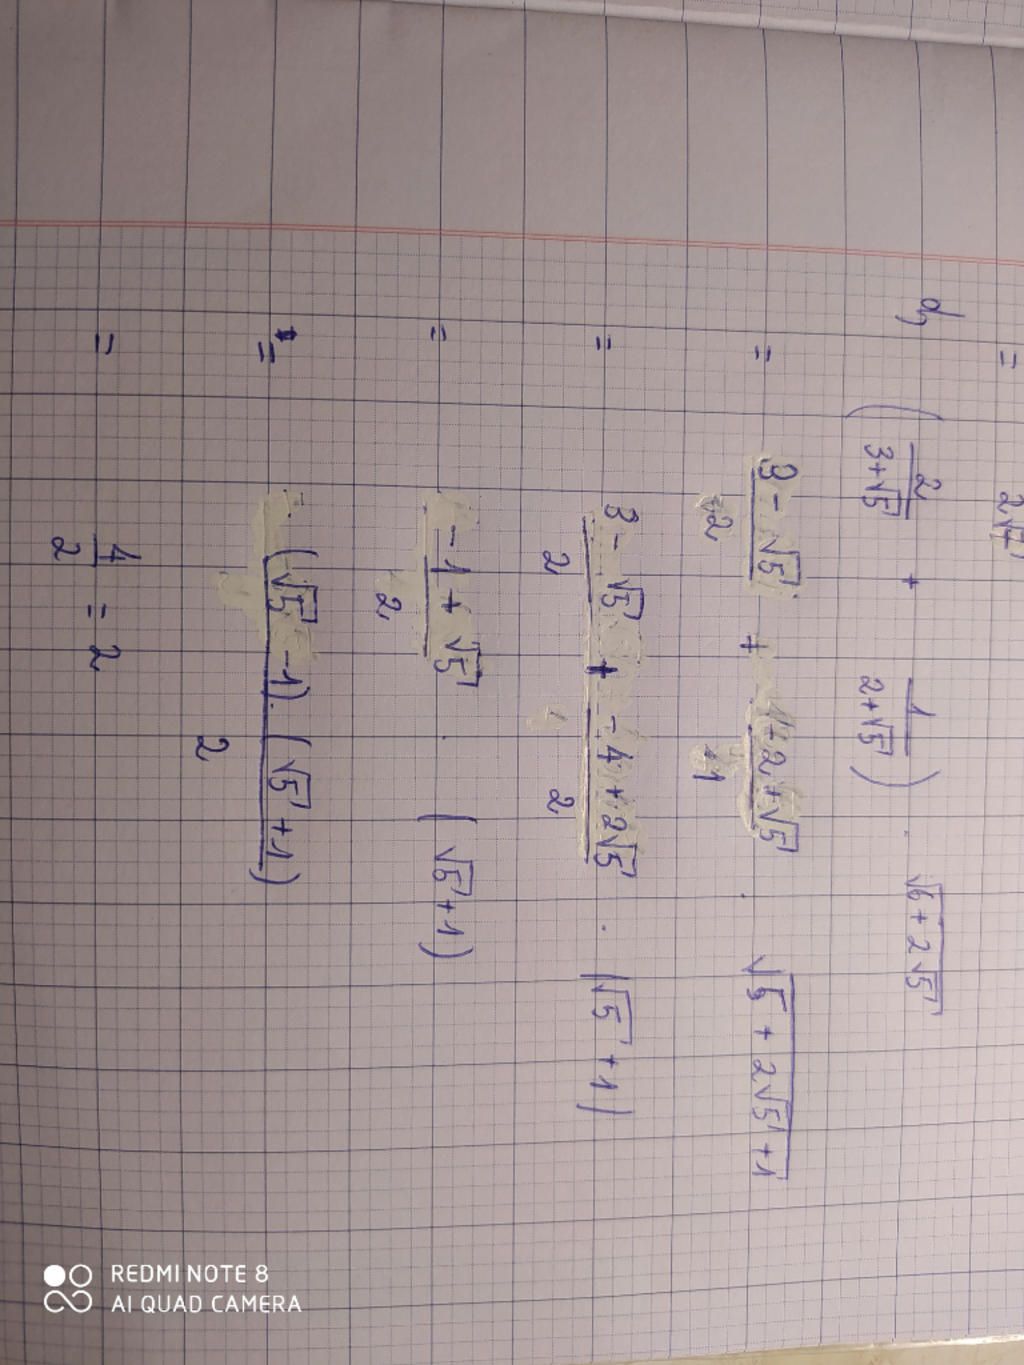 = 2√7
d, (2/(3+√5) + 1/(2+√5)) . √(6+2√5)
= (3-√5)/2 + (-2+√5)/1 . √(5+2√5+1)
= (3-√5)/2 + (-4+2√5)/2 . (√5+1)
= (-1+√5)/2 . (√5+1)
= (√5-1).(√5+1)/2
= 4/2 = 2
REDMI NOTE 8
AI QUAD CAMERA